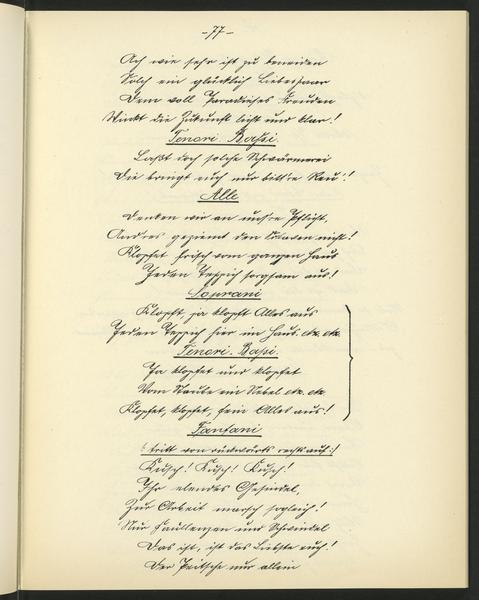 -77-
Ach wie sehr ist zu beneiden
Solch ein glücklich Liebespaar
Dem voll Paradieses Freuden
Winkt die Zukunft licht und klar!
Tenori. Bassi.
Laßt doch solche Schwärmerei
Die bringt euch nur bitt're Reu'!
Alle
Denken wir an uns're Pflicht,
And'res geziemt den Sclaven nicht!
Klopfet frisch vom ganzen Haus
Jeden Teppich sorgsam aus!
Soprani
Klopft, ja klopft Alles aus
Jeden Teppich hier im Haus. etc. etc.
Tenori. Bassi.
Ja klopfet und klopfet
Vom Staube ein Nebel etc. etc.
Klopfet, klopfet, fein Alles aus!
Fantani
/: tritt von rückwärts rechts auf :/
Kusch! Kusch! Kusch!
Ihr elendes Gesindel,
Zur Arbeit marsch sogleich!
Nur Faullenzen und Schwindel
Das ist, ist das Liebste euch!
Der Peitsche nur allein